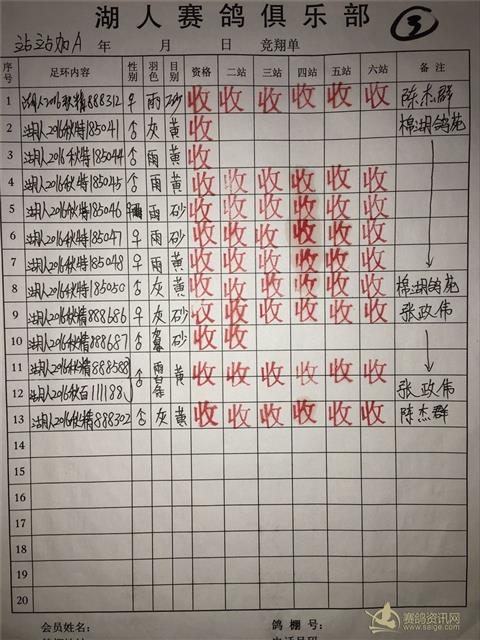 湖人赛鸽俱乐部
③
站站加A 年 月 日 竞翔单
序号 足环内容 性别 羽色 目别 资格 二站 三站 四站 五站 六站 备注
1 湖人2016秋精888312 雨 砂 收 收 收 收 收 收 陈杰群
2 湖人2016秋特185041 灰 黄 收 棉湖鸽苑
3 湖人2016秋特185044 雨 黄 收
4 湖人2016秋特185045 雨 黄 收 收 收 收 收 收
5 湖人2016秋特185046 雨 砂 收 收 收 收 收 收
6 湖人2016秋特185047 雨 砂 收 收 收 收 收 收
7 湖人2016秋特185048 雨 黄 收 收 收 收 收 收
8 湖人2016秋特185050 灰 黄 收 收 收 收 收 收 棉湖鸽苑
9 湖人2016秋精888686 灰 砂 收 收 收 收 收 收 张政伟
10 湖人2016秋精888687 砂 收 收
11 湖人2016秋精888588 雨 黄 收 收 收 收 收 收
12 湖人2016秋百111188 张政伟
13 湖人2016秋精888302 灰 黄 收 收 收 收 收 收 陈杰群
14
15
16
17
18
19
20
会员姓名: 鸽棚号:
赛鸽资讯网
www.saige.com